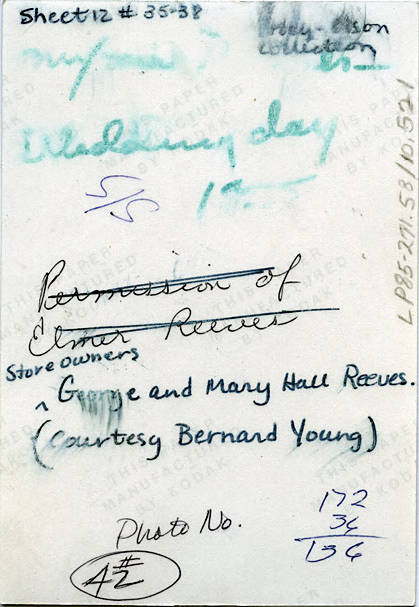 Sheet 12 # 35-38
collection
Wedding day
5/5
LP85-271.53/10.521
Permission of
Elmer Reeves
Store owners
^ George and Mary Hall Reeves.
(Courtesy Bernard Young)
Photo No.
#
42
172
36
136
THIS PAPER
MANUFACTURED
BY KODAK